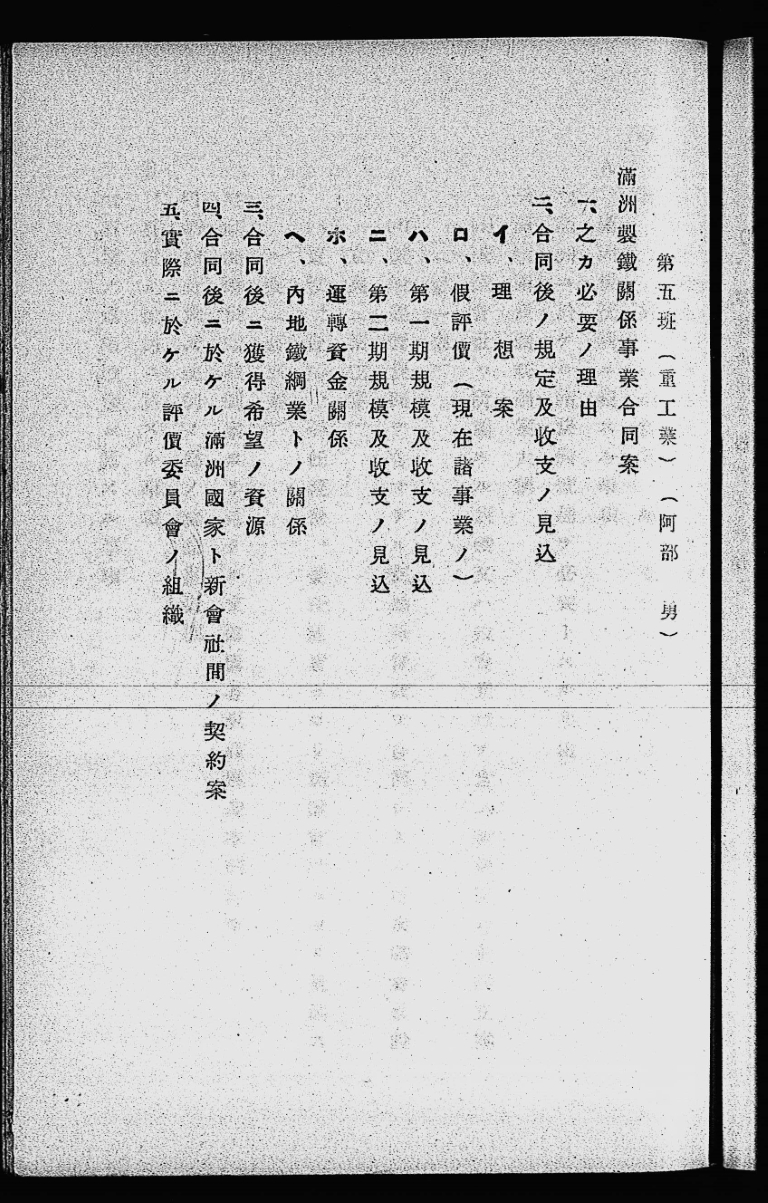 第五班（重工業）（阿部　勇）
滿洲製鐵關係事業合同案
一、之カ必要ノ理由
二、合同後ノ規定及收支ノ見込
イ、理想案
ロ、假評價（現在諸事業ノ）
ハ、第一期規模及收支ノ見込
ニ、第二期規模及收支ノ見込
ホ、運轉資金關係
ヘ、內地鐵綱業トノ關係
三、合同後ニ獲得希望ノ資源
四、合同後ニ於ケル滿洲國家ト新會社間ノ契約案
五、實際ニ於ケル評價委員會ノ組織